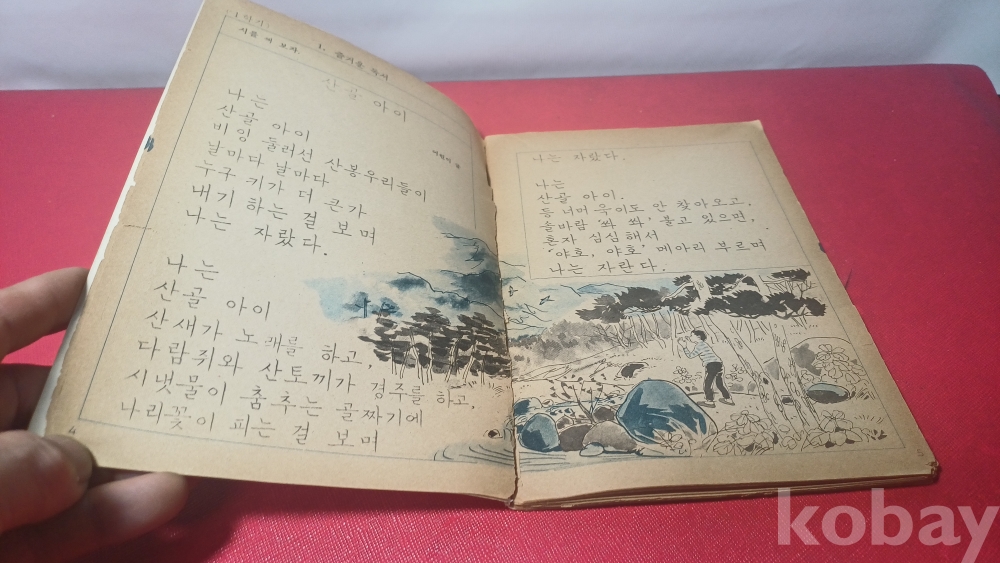 시를 써 보자.
1. 즐거운 독서
산골 아이
나는
산골 아이
비잉 둘러선 산봉우리들이
날마다 날마다
누구 키가 더 큰가
내기 하는 걸 보며
나는 자랐다.
나는
산골 아이
산새가 노래를 하고,
다람쥐와 산토끼가 경주를 하고,
시냇물이 춤추는 골짜기에
나리꽃이 피는 걸 보며
4
나는 자랐다.
나는
산골 아이.
등 너머 윽이도 안 찾아오고,
솔바람 ‘쏴 쏴’ 불고 있으면,
혼자 심심해서
‘야호, 야호’ 메아리 부르며
나는 자란다.
5
kobay